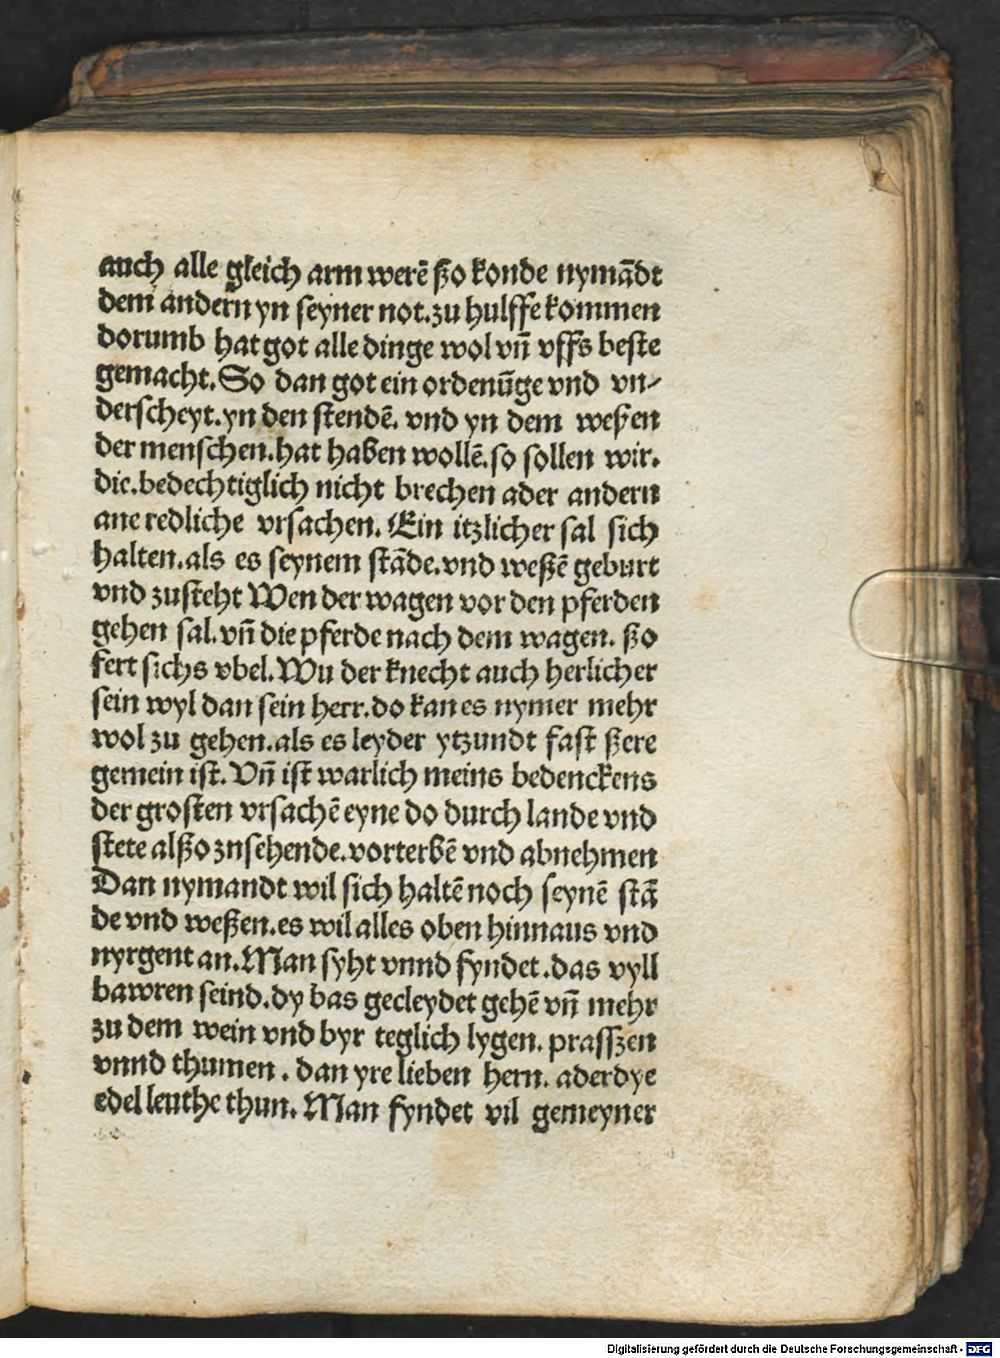 auch alle gleich arm werē ßo konde nymādt
dem andern yn seyner not. zu hulffe kommen
dorumb hat got alle dinge wol vn̄ vffs beste
gemacht. So dan got ein ordenūge vnd vn⸗
derscheyt. yn den stendē. vnd yn dem weßen
der menschen. hat haben wollē. so sollen wir.
die. bedechtiglich nicht brechen ader andern
ane redliche vrsachen. Ein itzlicher sal sich
halten. als es seynem stāde. vnd weßē geburt
vnd zusteht Wen der wagen vor den pferden
gehen sal. vn̄ die pferde nach dem wagen. ßo
fert sichs vbel. Wu der knecht auch herlicher
sein wyl dan sein herr. do kan es nymer mehr
wol zu gehen. als es leyder ytzundt fast ßere
gemein ist. Vn̄ ist warlich meins bedenckens
der grosten vrsachē eyne do durch lande vnd
stete alßo znsehende. vorterbē vnd abnehmen
Dan nymandt wil sich haltē noch seynē stā
de vnd weßen. es wil alles oben hinnaus vnd
nyrgent an. Man syht vnnd fyndet. das vyll
bawren seind. dy bas gecleydet gehē vn̄ mehr
zu dem wein vnd byr teglich lygen. prasszen
vnnd thumen. dan yre lieben hern. aderdye
edel leuthe thun. Man fyndet vil gemeyner
Digitalisierung gefördert durch die Deutsche Forschungsgemeinschaft - DFG